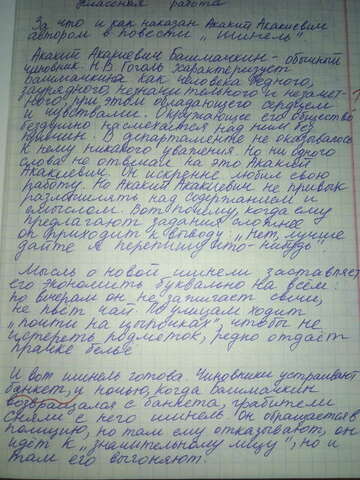 Классная работа
За что и как наказан Акакий Акакиевич
автором в повести „Шинель"
Акакий Акакиевич Башмачкин - обычный
чиновник. Н.В. Гоголь характеризует
Башмачкина как человека бедного,
заурядного, незначительного и незамет-
ного, при этом обладающего сердцем
и чувствами. Окружающее его общество
бездушно насмехается над ним без
причины. В департаменте не оказывалось
к нему никакого уважения. Но ни одного
слова не отвечал на это Акакий
Акакиевич. Он искренне любил свою
работу. Но Акакий Акакиевич не привык
размышлять над содержанием и
смыслом. Вот почему, когда ему
предлагают задания сложнее
он приходит к выводу: „Нет, лучше
дайте я перепишу что-нибудь"
Мысль о новой шинели заставляет
его экономить буквально на всём:
по вечерам он не зажигает свечи,
не пьёт чай. По улицам ходит
„почти на цыпочках", чтобы не
истереть подметок, редко отдаёт
прачке бельё.
И вот шинель готова. Чиновники устраивают
банкет, и ночью, когда Башмачкин
возвращался с банкета, грабители
сняли с него шинель он обращается в
полицию, но там ему отказывают, он
идёт к „значительному лицу", но и
там его выгоняют.